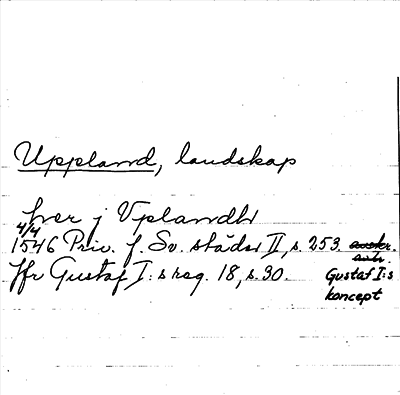 Uppland, landskap
hver j Vplandh
4/4
1546 Priv. f. Sv. städer II, s. 253. avskr.
Jfr Gustaf I:s reg. 18, s. 30. Gustaf I:s
koncept